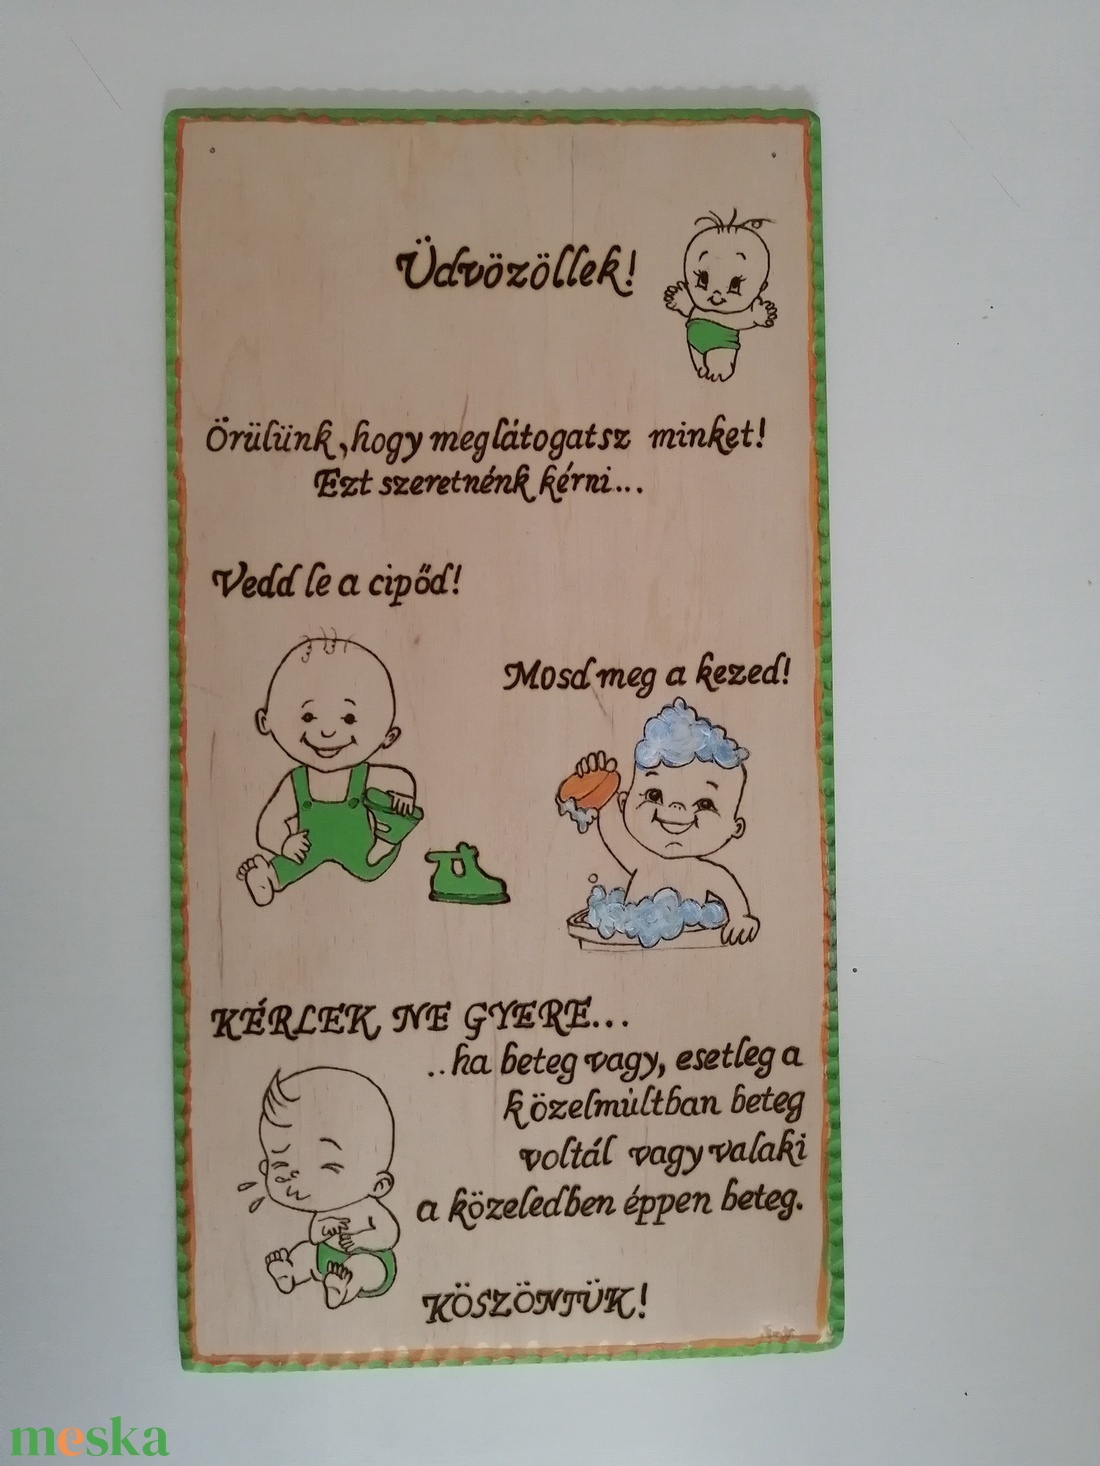 Üdvözöllek!
Örülünk, hogy meglátogatsz minket!
Ezt szeretnénk kérni...
Vedd le a cipőd!
Mosd meg a kezed!
KÉRLEK NE GYERE...
..ha beteg vagy, esetleg a
közelmúltban beteg
voltál vagy valaki
a közeledben éppen beteg.
KÖSZÖNTÜK!
meska